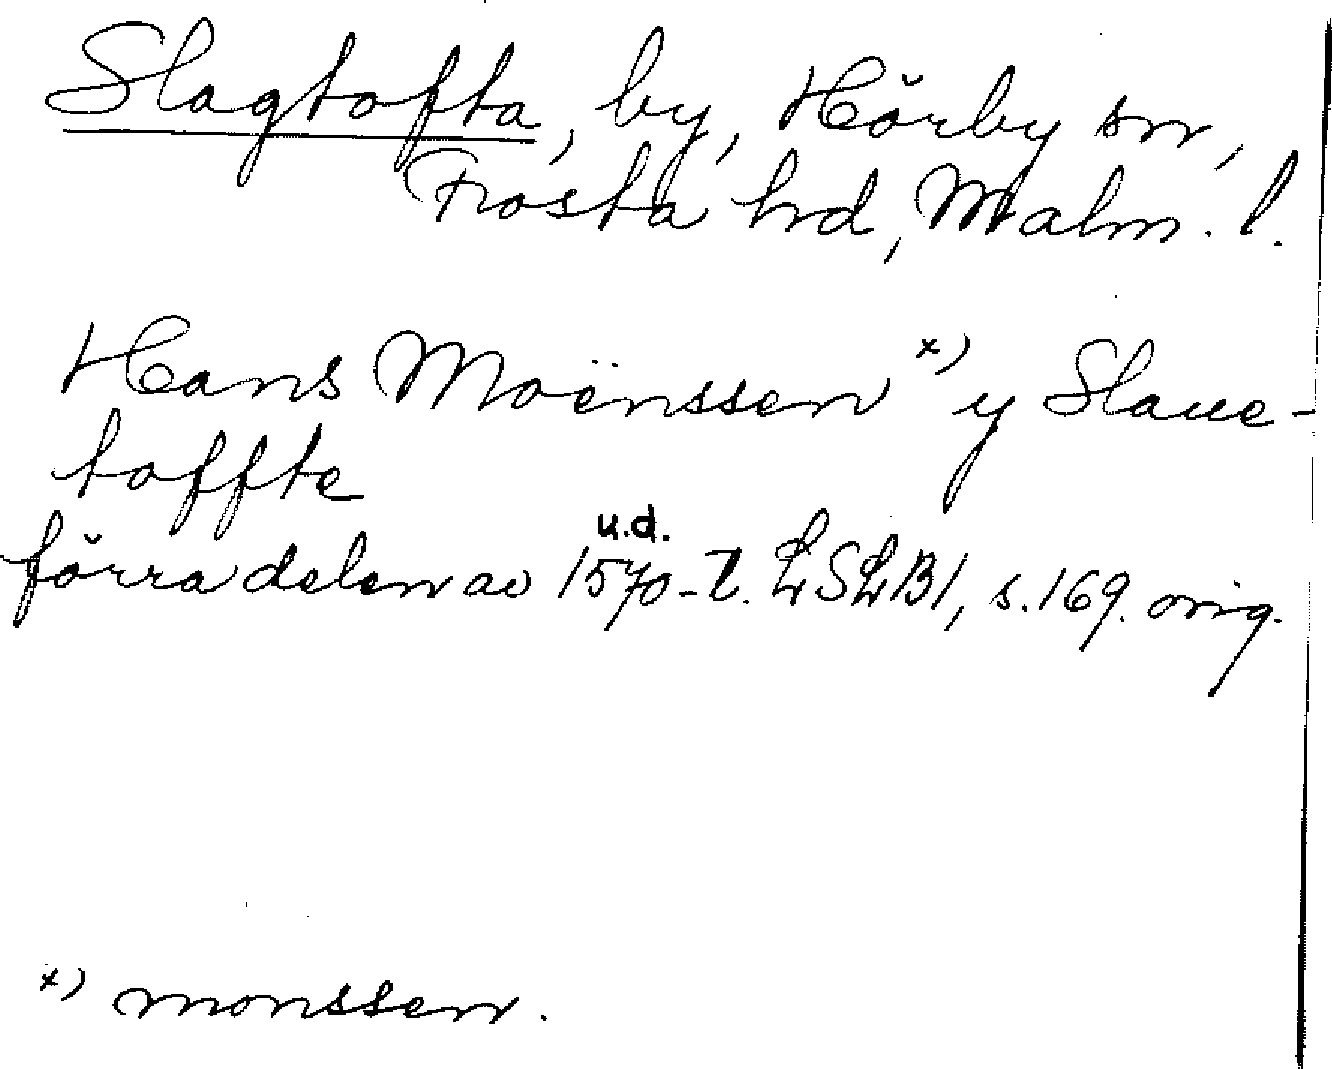 Slagtofta, by, Hörby sn,
Frosta hd, Malm. l.
Hans Moënssen x) y Slaue-
toffte
u.d.
förra delen av 1570-t. LSLB1, s.169. orig.
x) monssen.